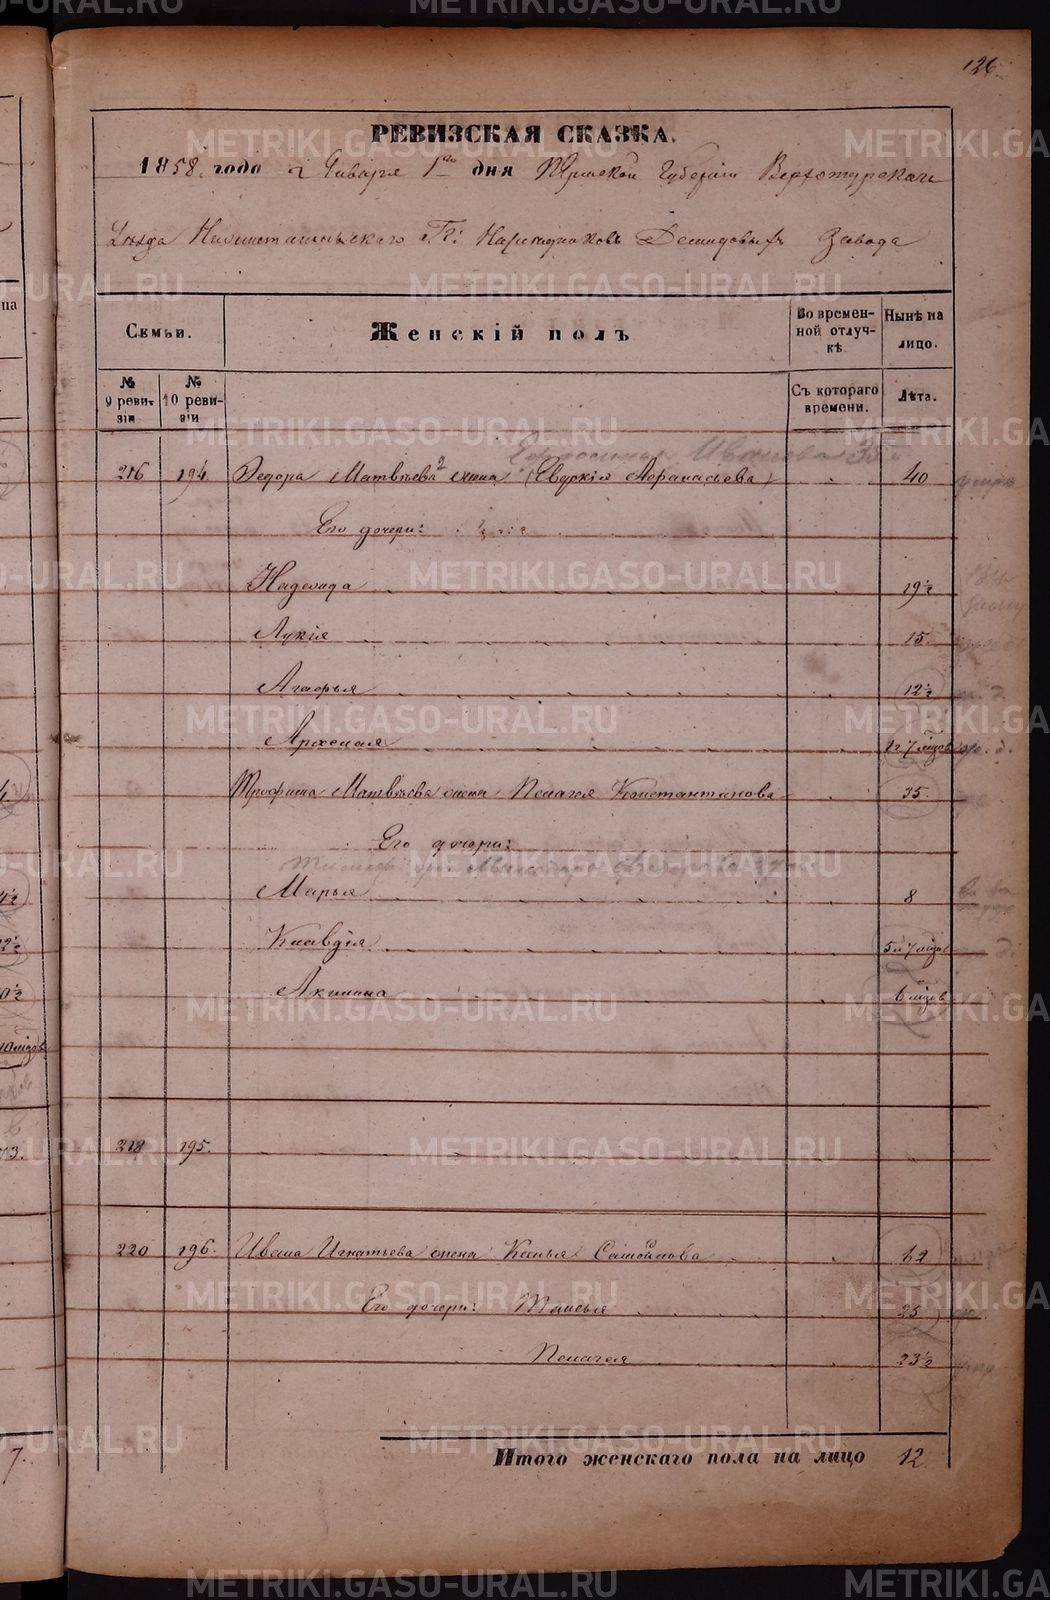 126
РЕВИЗСКАЯ СКАЗКА.
1858 года Января 1го дня Пермской Губерніи Верхотурскаго
Уѣзда Нижнетагильскаго Гг: Наслѣдниковъ Демидовыхъ Завода
Семьи. Женскій полъ Во временной отлучкѣ Нынѣ на лицо.
№ 9 ревизіи № 10 ревизіи Съ котораго времени. Лѣта.
Ивановна
216 194 Федора Матвѣева 2 жена (Евдокія Афанасьева) 40
Его дочери:
Надежда 19½
Лукія 15.
Агафья 12½
Арсенія 7 мѣсцов
Трофима Матвѣева жена Пелагея Константинова 35.
Его дочери:
Марья 8
Клавдія 5 л 7 мѣсцов
Акилина 6 мѣсцов
218 195.
220 196. Ивана Игнатьева жена Ксенья Самойлова 62
Его дочери: Таисья 25
Пелагея 23½
Итого женскаго пола на лицо 12
METRIKI.GASO-URAL.RU